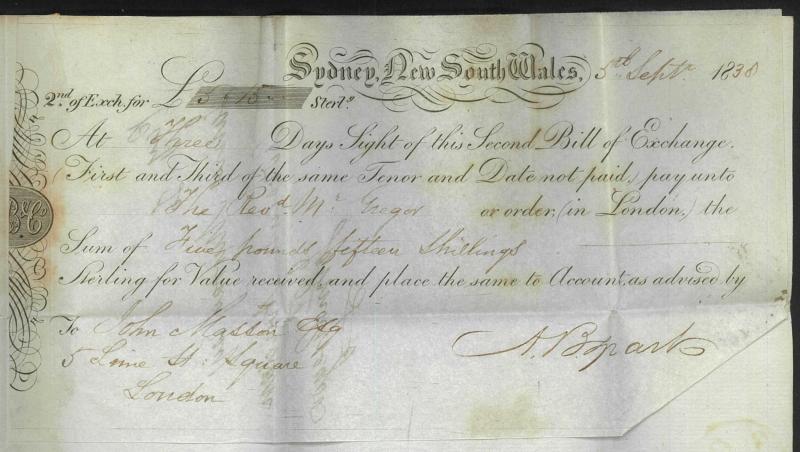 Sydney, New South Wales, 5th Septr 1838
2nd. of Exch. for £ 5 " 15 " Sterlg.
At Three Days Sight of this Second Bill of Exchange.
(First and Third of the same Tenor and Date not paid,) pay unto
The Revd. Mr. Gregor or order, (in London,) the
Sum of Five pounds fifteen Shillings
Sterling for Value received, and place the same to Account, as advised by
To John Masson Esq
5 Lime St. Square
London